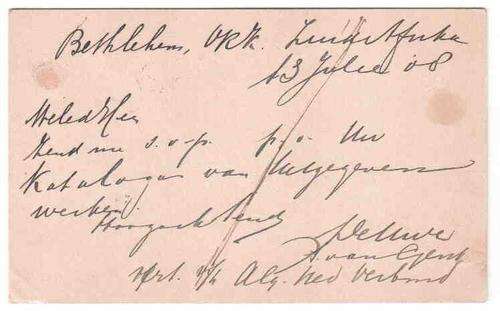 Bethlehem, ORK. Zuid Afrika
13 Julie 08
WelEd Heer
Zend me s.o.p. p.o. Uw
Katalogus van Uitgegeven
werken
Hoogachtend
De Uwe
van Gent
Alg. Ned Verbond